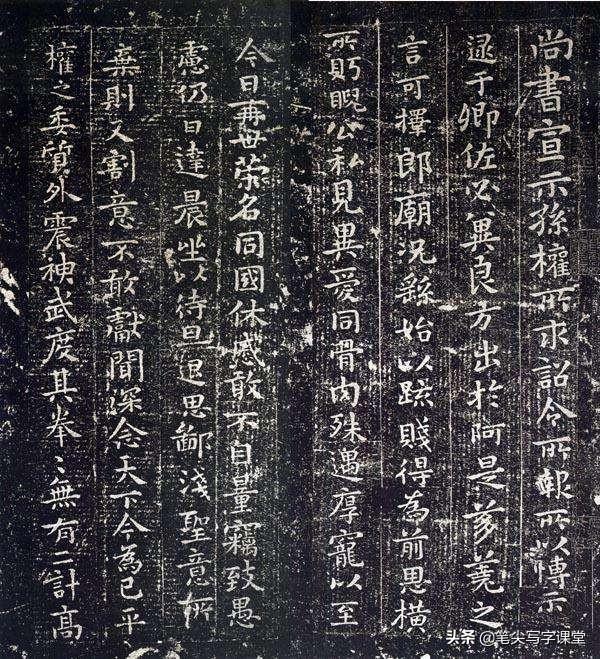 尚書宣示孫權所求詔令所報所以博示
逮于卿佐必冀良方出於阿是芻蕘之
言可擇郎廟況繇始以疏賤得為前恩橫
所盻睨公私見異愛同骨肉殊遇厚寵以至
今日再世榮名同國休慼敢不自量竊致愚
慮仍日達晨坐以待旦退思鄙淺聖意所
棄則又割意不敢獻聞深念天下今為已平
權之委質外震神武度其拳〻無有二計高
头条 @笔尖写字课堂